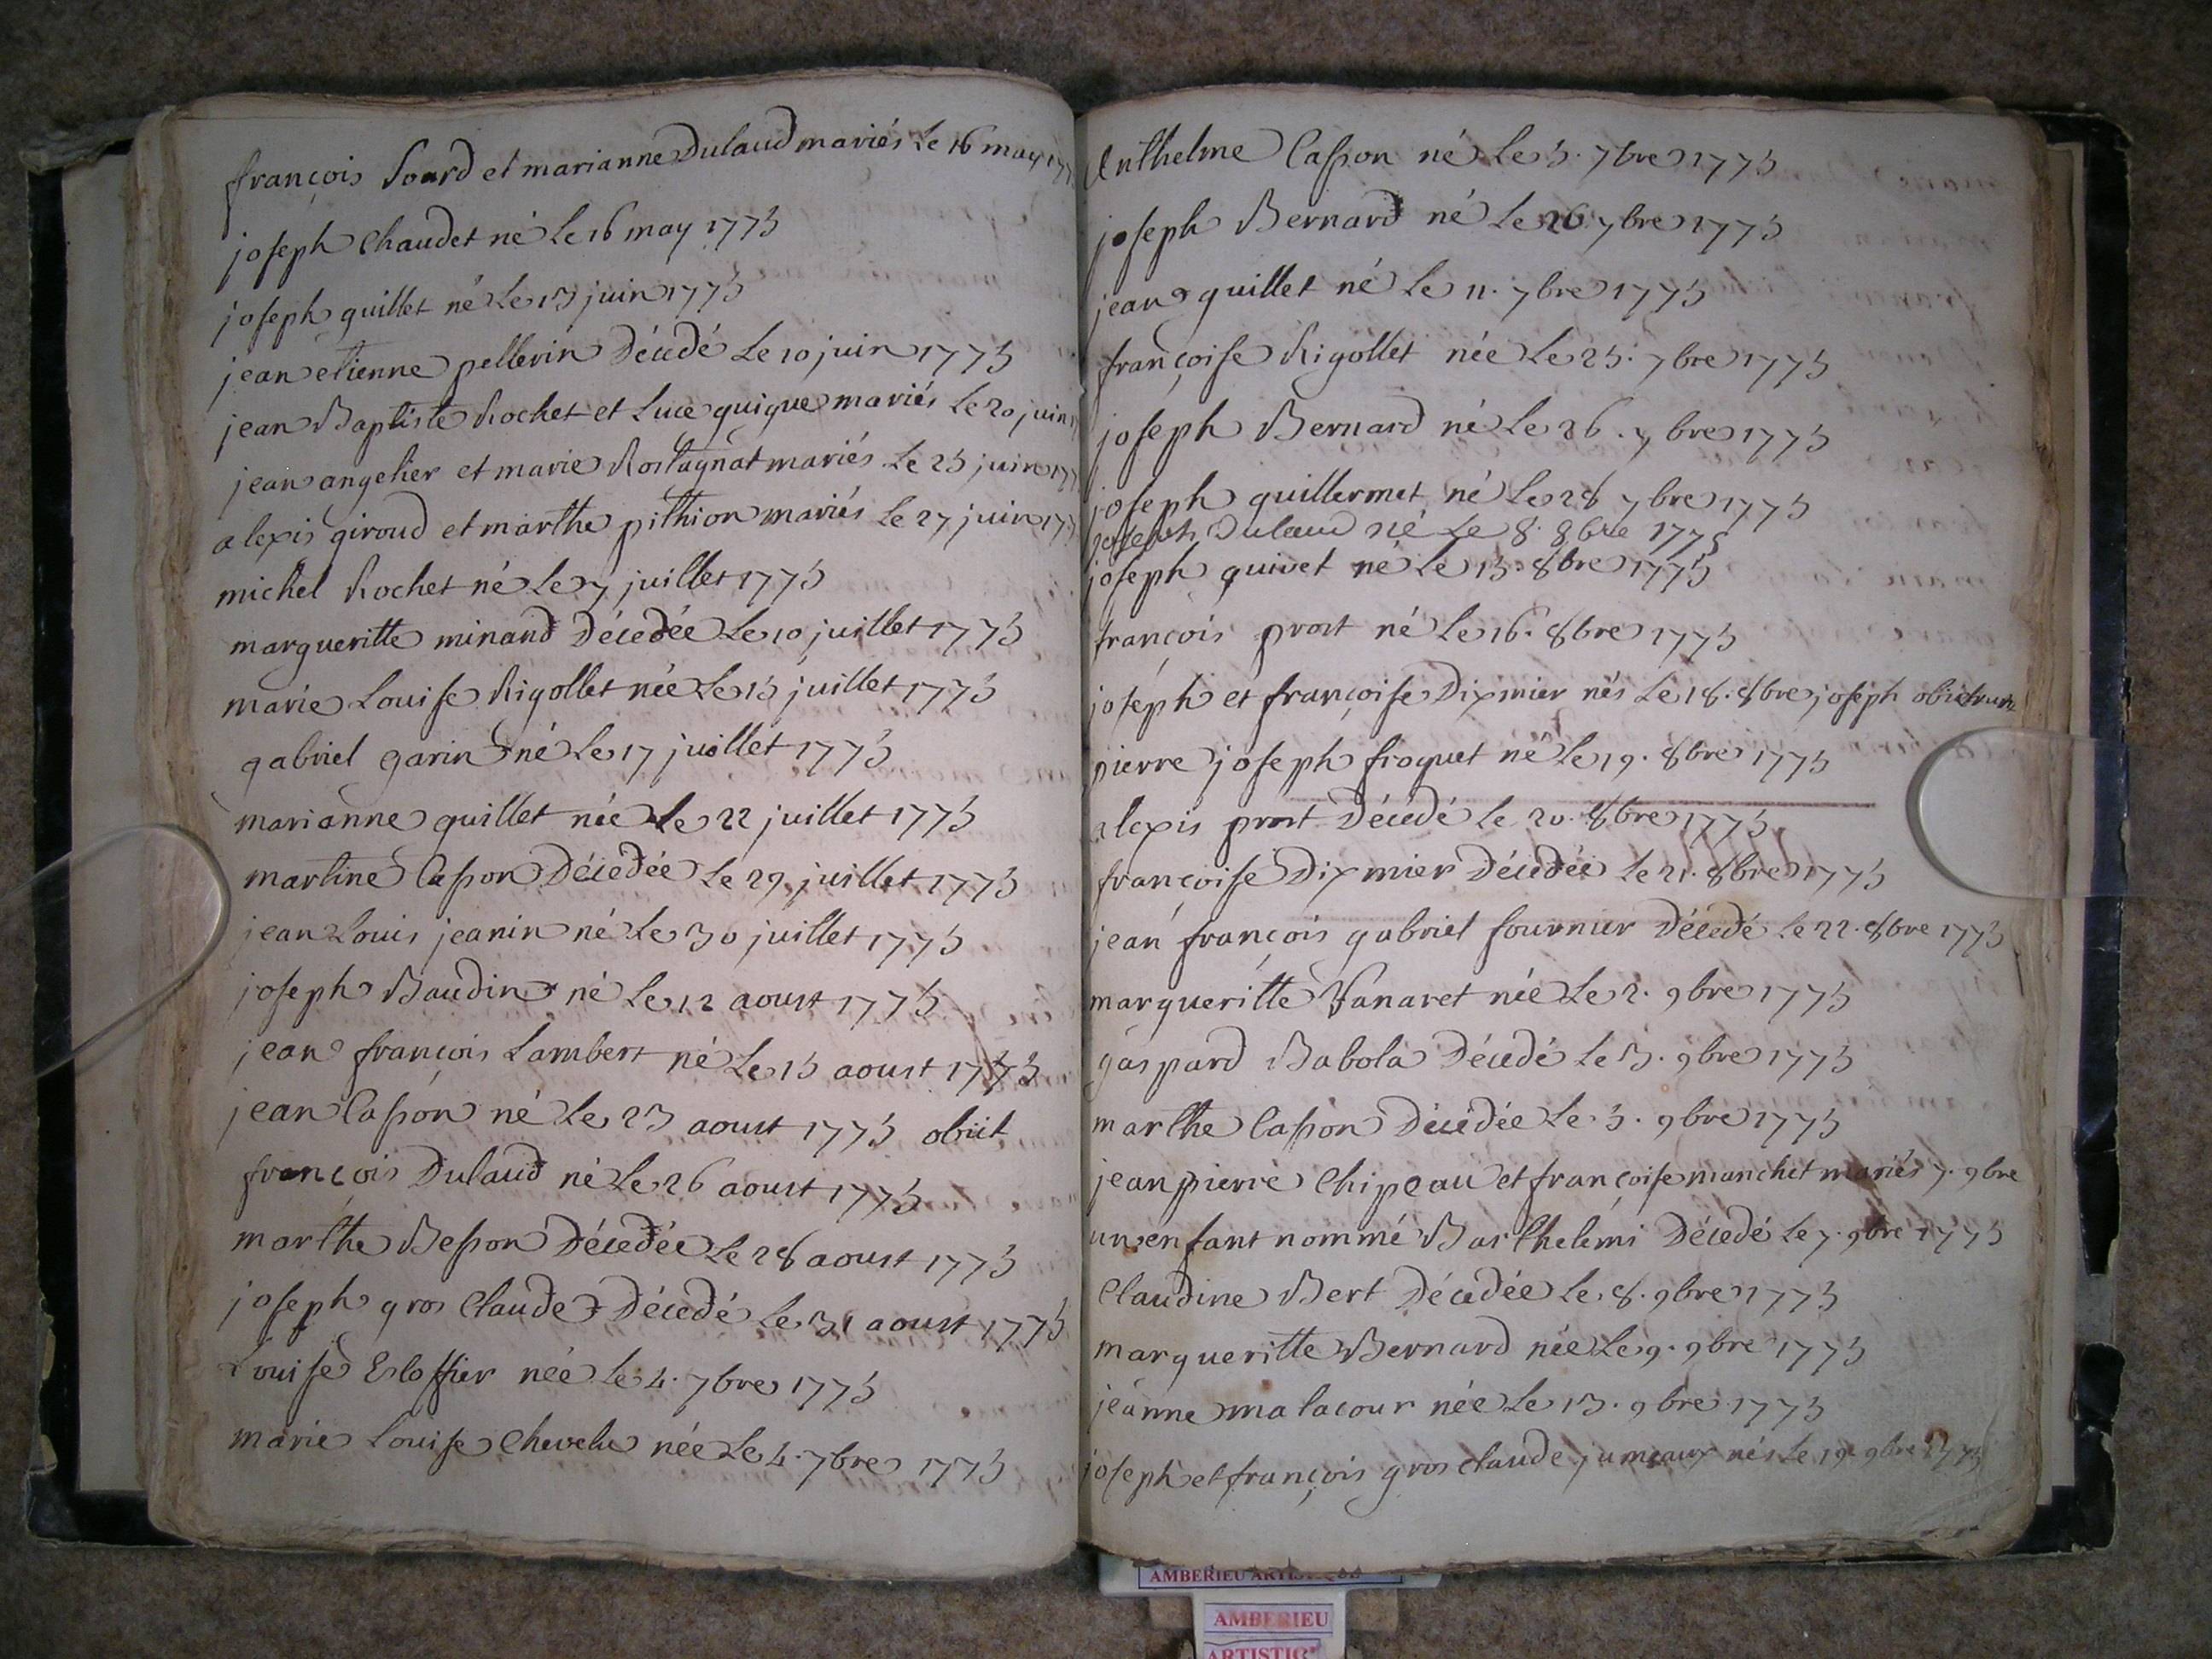 françois Sourd et marianne Dulaud mariés Le 16 may 177
joseph Chaudet né Le 16 may 1773
joseph guillet né Le 13 juin 1773
jean etienne pellerin Décédé Le 10 juin 1773
jean Baptiste Rochet et Luce guigue mariés Le 20 juin
jean angelier et marie Rostagnat mariés Le 23 juin 177
alexis giroud et marthe pithion mariés Le 27 juin 177
michel Rochet né Le 7 juillet 1773
margueritte minand Décedée Le 10 juillet 1773
marie Louise Rigollet née Le 13 juillet 1773
gabriel garin né Le 17 juillet 1773
marianne guillet née Le 22 juillet 1773
martine Casson Décedée Le 29 juillet 1773
jean Louis jeanin né Le 30 juillet 1773
joseph Baudin né Le 12 aoust 1773
jean françois Lambert né Le 13 aoust 1773
jean Casson né Le 23 aoust 1773 obiit
françois Dulaud né Le 26 aoust 1773
marthe Besson Décedée Le 28 aoust 1773
joseph gros Claude Décedé Le 31 aoust 1773
Louise Eloffier née Le 4. 7bre 1773
marie Louise Chevelu née Le 4. 7bre 1773
Anthelme Casson né Le 3. 7bre 1773
joseph Bernard né Le 26 7bre 1773
jean guillet né Le 11. 7bre 1773
françoise Rigollet née Le 23. 7bre 1773
joseph Bernard né Le 26. 7bre 1773
joseph guillermet né Le 28 7bre 1773
joseph Dulaud né Le 8. 8bre 1773
joseph guivet né Le 13. 8bre 1773
françois prost né Le 16. 8bre 1773
joseph et françoise Dixmier nés Le 18. 8bre joseph
pierre joseph froquet né Le 19. 8bre 1773
alexis prost Décédé Le 20. 8bre 1773
françoise Dixmier Décedée Le 21. 8bre 1773
jean françois gabriel fournier Décedé Le 22. 8bre 1773
margueritte Vanaret née Le 2. 9bre 1773
gaspard Babola Décedé Le 3. 9bre 1773
marthe Casson Décédée Le 3. 9bre 1773
jean pierre Chipeau et françoise manchet mariés 7. 9bre
un enfant nommé Barthelemi Décedé Le 7. 9bre 1773
Claudine Bert Décedée Le 8. 9bre 1773
margueritte Bernard née Le 9. 9bre 1773
jeanne malacour née Le 13. 9bre 1773
joseph et françois gros claude jumeaux nés Le 19. 9bre 1773
AMBERIEU
AMBERIEU